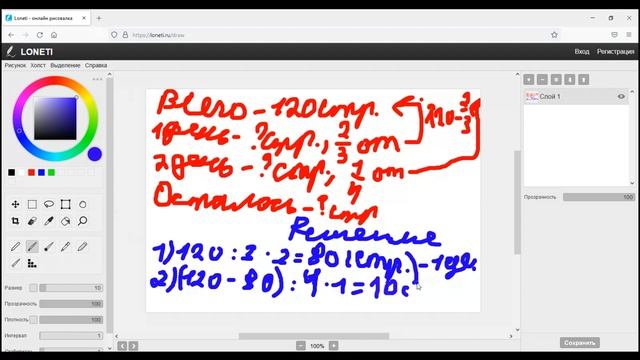 Loneti - онлайн рисовалка
https://loneti.ru/draw
LONETI
Вход Регистрация
Рисунок Холст Выделение Справка
Слой 1
Прозрачность 100
Размер 10
Прозрачность 100
Плотность 100
Интервал 1
100%
Сохранить
Всего - 120 стр.
1 день - ? стр., 2/3 от
2 день - ? стр., 1/4 от
Осталось - ? стр
Решение
1) 120 : 3 · 2 = 80 (стр.) - 1 день
2) (120 - 80) : 4 · 1 = 10 с